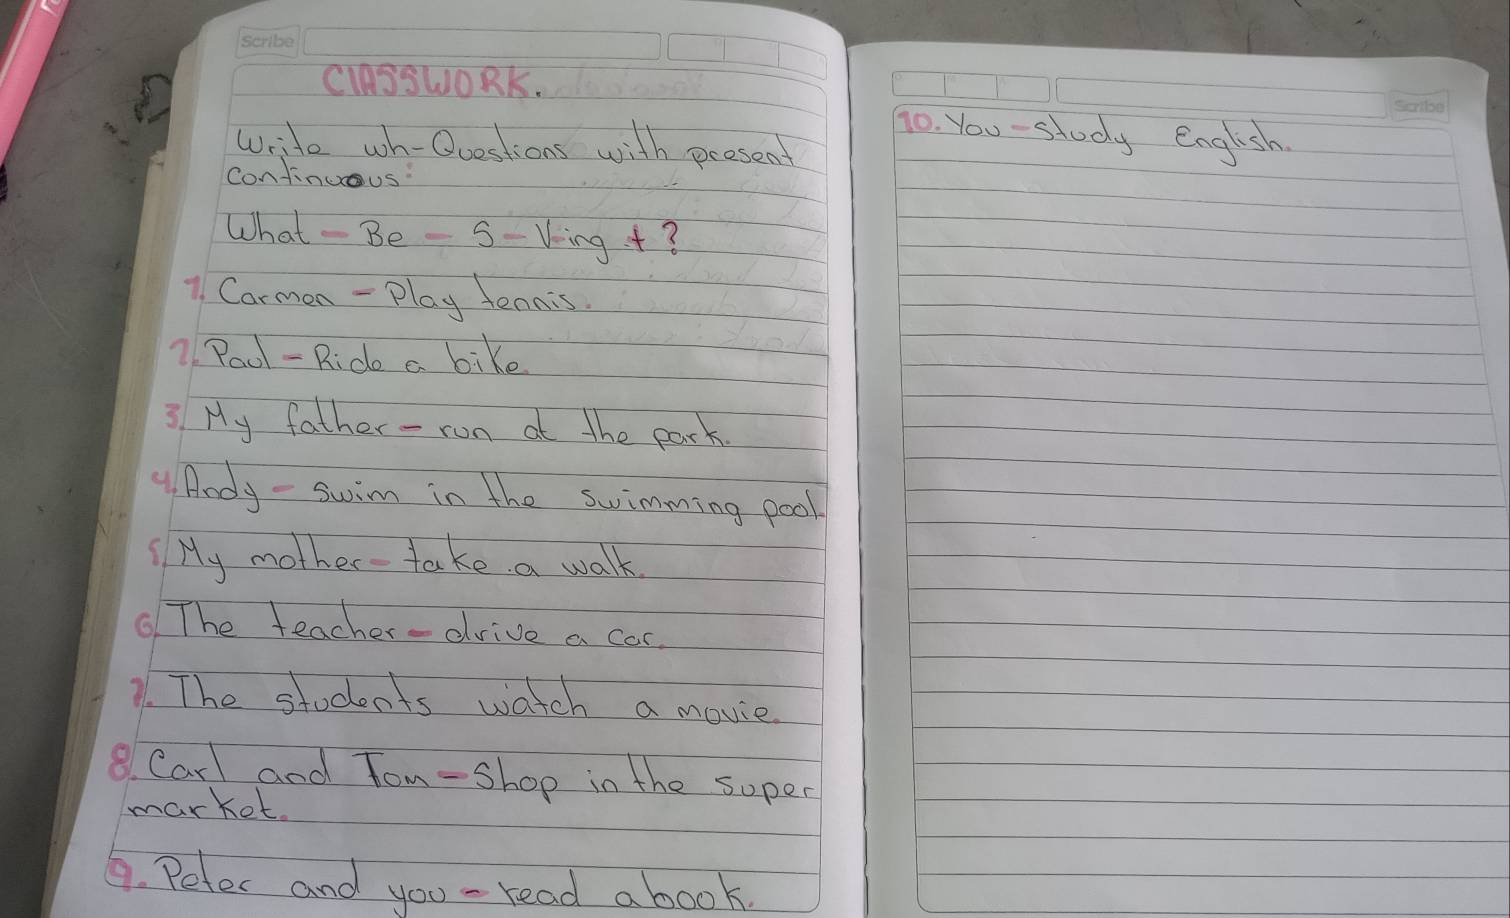 Scribe
CLASSWORK.
Write wh-Questions with present
continuous:
What - Be - S - V-ing + ?
1. Carmen - Play tennis.
2. Paul - Ride a bike.
3. My father - run at the park.
4. Andy - swim in the swimming pool.
5. My mother - take a walk.
6. The teacher - drive a car.
7. The students watch a movie.
8. Carl and Tom - Shop in the super
market.
9. Peter and you - read a book.
Scribe
10. You - study English.